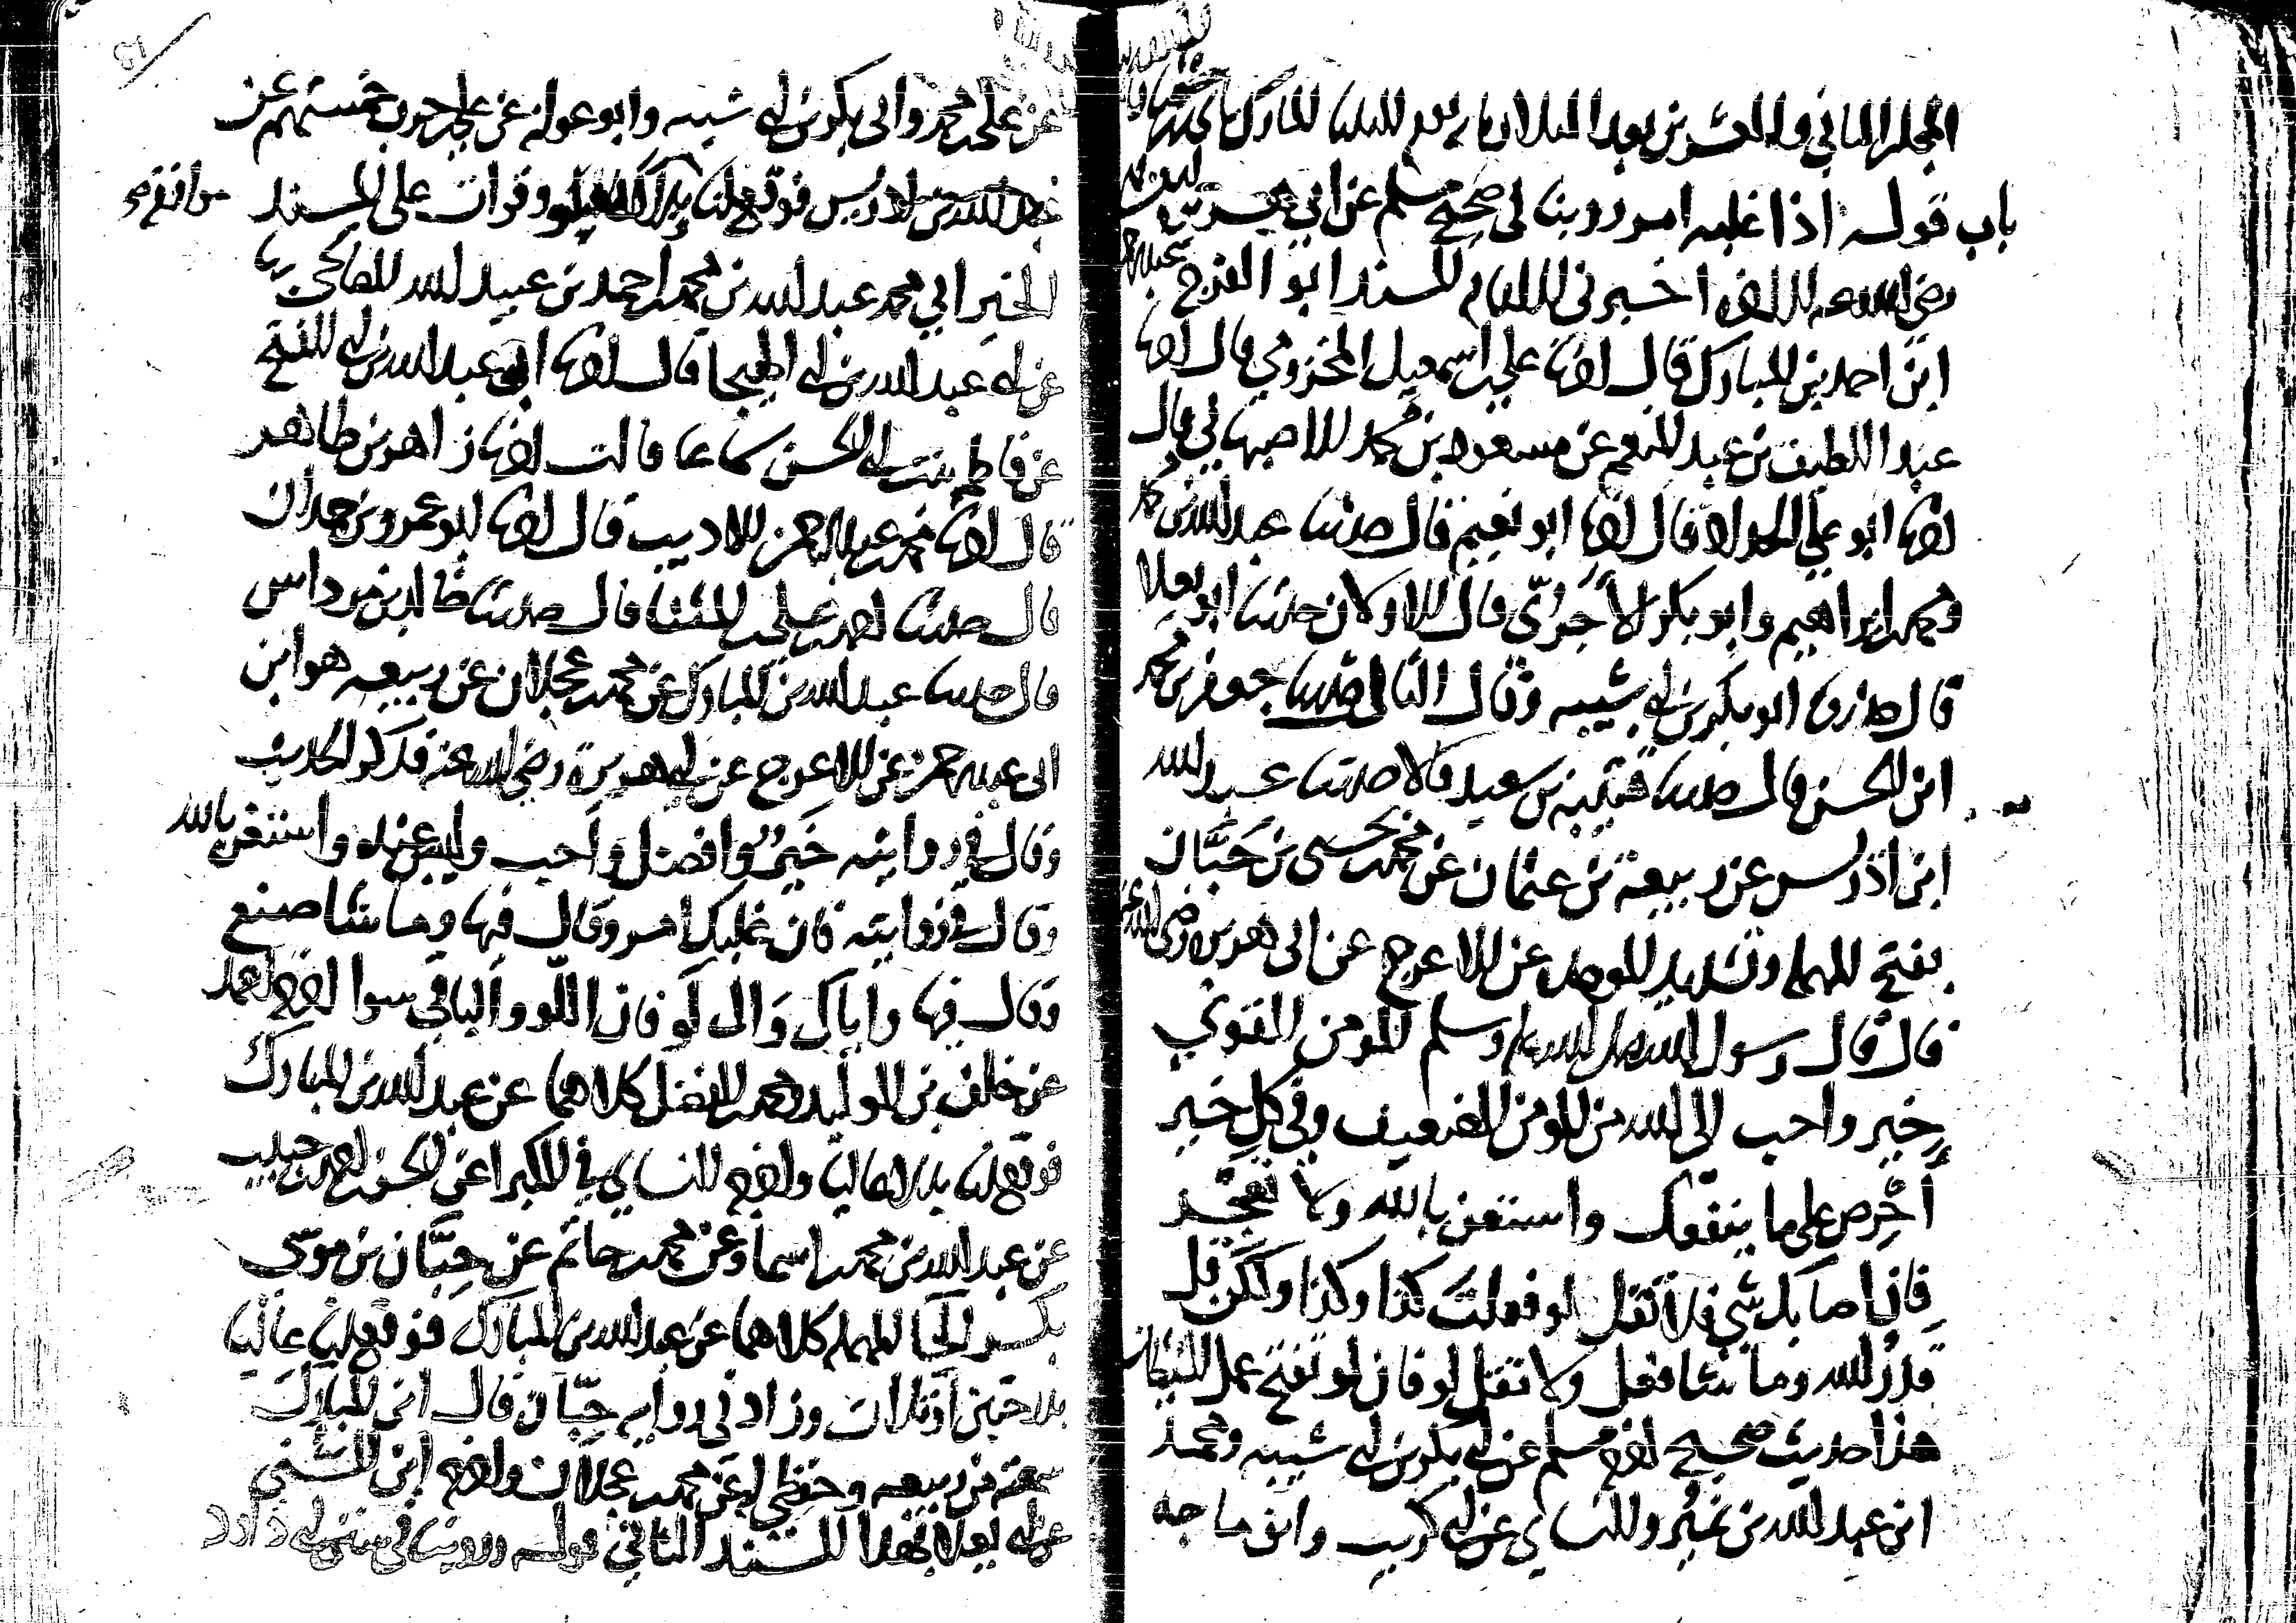 المجلس الثاني والعشرين بعد الثلاثمائة
باب قوله اذا غلبه امر روينا في صحيح مسلم عن ابي هريرة
رضي الله عنه اخبرني الامام المسند ابو الفرج
ابن احمد بن المبارك قال انا علي بن اسمعيل المخزومي قال انا
عبد اللطيف بن عبد المنعم عن مسعود بن محمد الاصبهاني قال
انا ابو علي الحداد قال انا ابو نعيم قال حدثنا عبد الله بن محمد
ومحمد بن ابراهيم وابو بكر الآجري قال الاولان حدثنا ابو يعلا
قال حدثنا ابو بكر بن ابي شيبه وقال الثالث حدثنا جعفر بن محمد
ابن الحسن قال حدثنا قتيبة بن سعيد قالا حدثنا عبد الله
ابن ادريس عن ربيعة بن عثمان عن محمد بن يحيى بن حَبَّان
بفتح المهملة وتشديد الموحدة عن الاعرج عن ابي هريرة رضي الله عنه
قال قال رسول الله صلى الله عليه وسلم المؤمن القوي
خير واحب الى الله من المؤمن الضعيف وفي كل خير
أحرص على ما ينفعك واستعن بالله ولا تعجز
فان اصابك شي فلا تقل لو فعلت كذا وكذا ولكن قل
قدر الله وما شا فعل ولا تقل لو فان لو تفتح عمل الشيطان
هذا حديث صحيح اخرجه مسلم عن ابي بكر بن ابي شيبه ومحمد
ابن عبد الله بن نمير والنسائي عن ابي كريب وابن ماجه
عن علي بن محمد وابي بكر بن ابي شيبه وابو عوانة عن علي بن حرب خمستهم عن
عبد الله بن ادريس فوقع لنا بدلا عاليا وقرات على المسند
الخير ابي محمد عبد الله بن محمد بن احمد بن عبيد الله الصالحي بها
عن ابي عبد الله بن ابي الهيجا قال انا ابو عبد الله بن ابي الفتح
عن فاطمة بنت ابي الحسن سماعا قالت انا زاهر بن طاهر
قال انا محمد بن عبد الرحمن الاديب قال انا ابو عمرو بن حمدان
قال حدثنا احمد بن علي بن المثنا قال حدثنا خالد بن مرداس
قال حدثنا عبد الله بن المبارك عن محمد بن عجلان عن ربيعه هو ابن
ابي عبد الرحمن عن الاعرج عن ابي هريرة رضي الله عنه فذكر الحديث
وقال في روايته خير وافضل وأحب وليس عنده واستعن بالله
وقال في روايته فان غلبك امر وقال فيها وما شا صنع
وقال فيها واياك وَاللو فان اللو والباقي سوا اخرجه احمد
عن خلف بن الوليد ومحمد بن الفضل كلاهما عن عبد الله بن المبارك
فوقع لنا بدلا عاليا واخرجه النسائي في الكبرا عن الحسن بن احمد بن حبيب
عن عبد الله بن محمد بن اسما وعن محمد بن حاتم عن حِبَّان بن موسى
بكسر الحا المهمله كلاهما عن عبد الله بن المبارك فوقع لنا عاليا
بدرجتين او ثلاث وزاد في رواية حِبَّان قال ابن المبارك
سمعته من ربيعه وحفظي له عن محمد بن عجلان واخرجه ابن السني
عن ابي يعلا بهذا السند الثاني قوله وروينا في سنن ابي داود